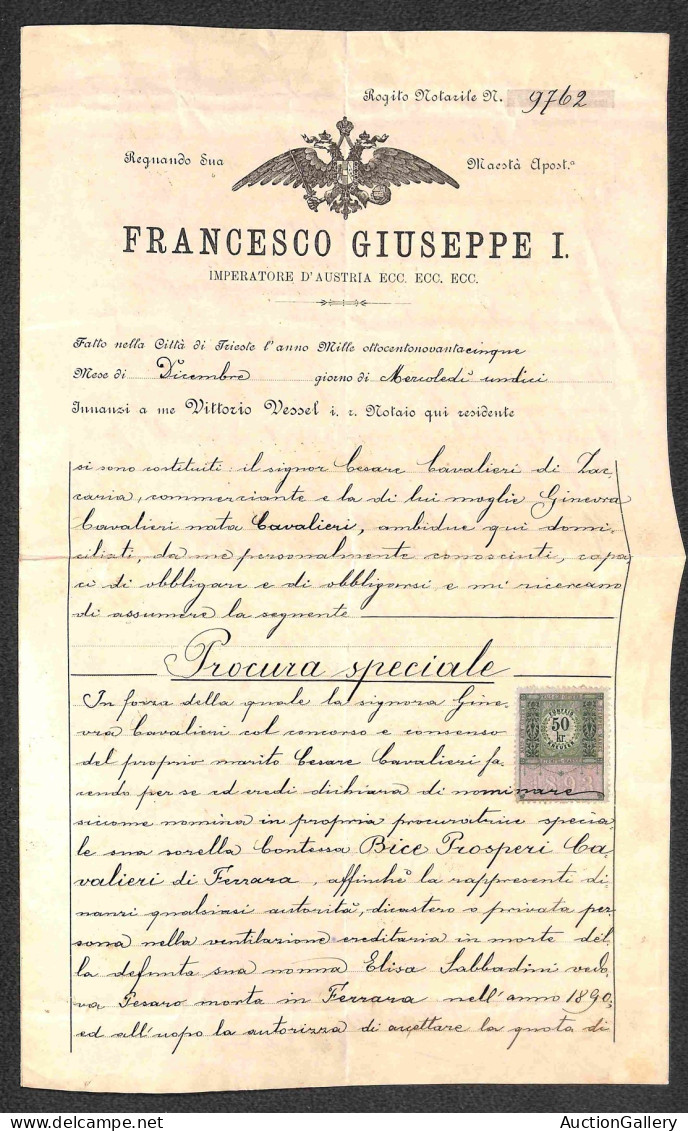 Rogito Notarile N. 9762
Regnando Sua Maestà Apost.a
FRANCESCO GIUSEPPE I.
IMPERATORE D'AUSTRIA ECC. ECC. ECC.
Fatto nella Città di Trieste l'anno Mille ottocentonovantacinque
Mese di Dicembre giorno di Mercoledì undici
Innanzi a me Vittorio Vessel i. r. Notaio qui residente
si sono costituiti: il signor Cesare Cavalieri di Zac-
caria, commerciante e la di lui moglie Ginevra
Cavalieri nata Cavalieri, ambidue qui domi-
ciliati, da me personalmente conosciuti, capa-
ci di obbligare e di obbligarsi e mi ricercano
di assumere la seguente
Procura speciale
In forza della quale la signora Gine-
vra Cavalieri col concorso e consenso
del proprio marito Cesare Cavalieri fa-
cendo per se ed eredi dichiara di nominare
50
kr.
1893
siccome nomina in propria procuratrice specia-
le sua sorella Contessa Bice Prosperi Ca-
valieri di Ferrara, affinchè la rappresenti di-
nanzi qualsiasi autorità, dicastero o privata per-
sona nella ventilazione ereditaria in morte del-
la defunta sua nonna Elisa Sabbadini vedo-
va Pesaro morta in Ferrara nell'anno 1890,
ed all'uopo la autorizza di accettare la quota di
AuctionGallery